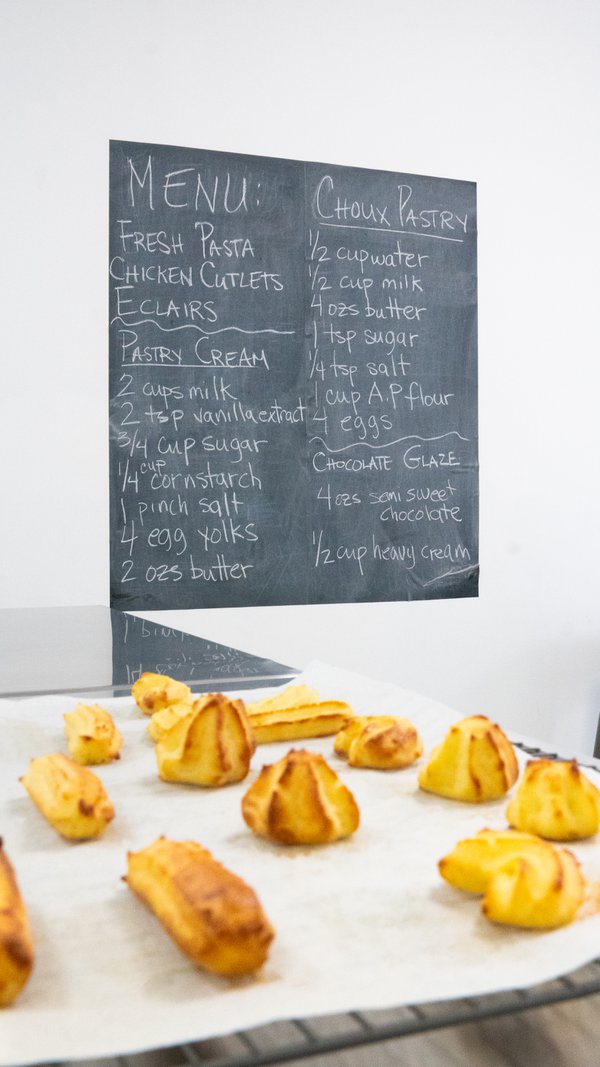 MENU:
FRESH PASTA
CHICKEN CUTLETS
ECLAIRS
PASTRY CREAM
2 cups milk
2 tsp vanilla extract
3/4 cup sugar
1/4 cup cornstarch
1 pinch salt
4 egg yolks
2 ozs butter
CHOUX PASTRY
1/2 cup water
1/2 cup milk
4 ozs butter
1 tsp sugar
1/4 tsp salt
1 cup A.P flour
4 eggs
CHOCOLATE GLAZE
4 ozs semi sweet
chocolate
1/2 cup heavy cream